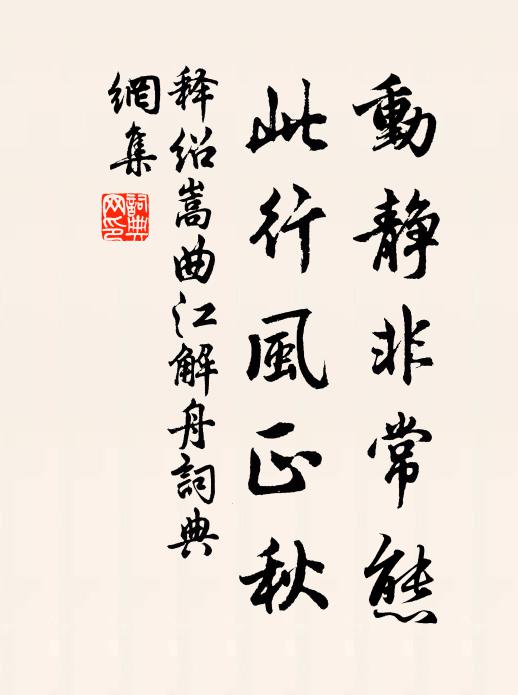 動靜非常態
此行風正秋
释绍嵩曲江解舟詞典
網集
詞典
网印